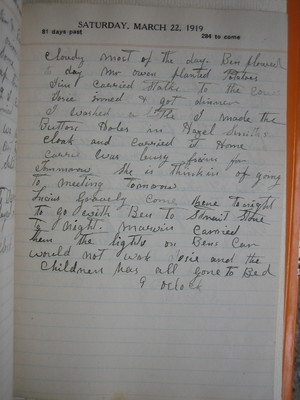 SATURDAY, MARCH 22, 1919
81 days past 284 to come
cloudy most of the day. Ben plowed
to day Mr owen planted Potatoes
Jim carried Stalks to the cow
Josie ironed & got dinner
I washed a little I made the
Button Holes in Hazel Smiths
cloak and carried it Home
Carrie was busy fixin for
Tomorrow she is thinkin of going
to meeting tomorrow
Lucius come here tonight
to go with Ben to Store
to night. carried
them the lights on Bens Car
would not work Josie and the
Children has all gone to Bed
9 oclock